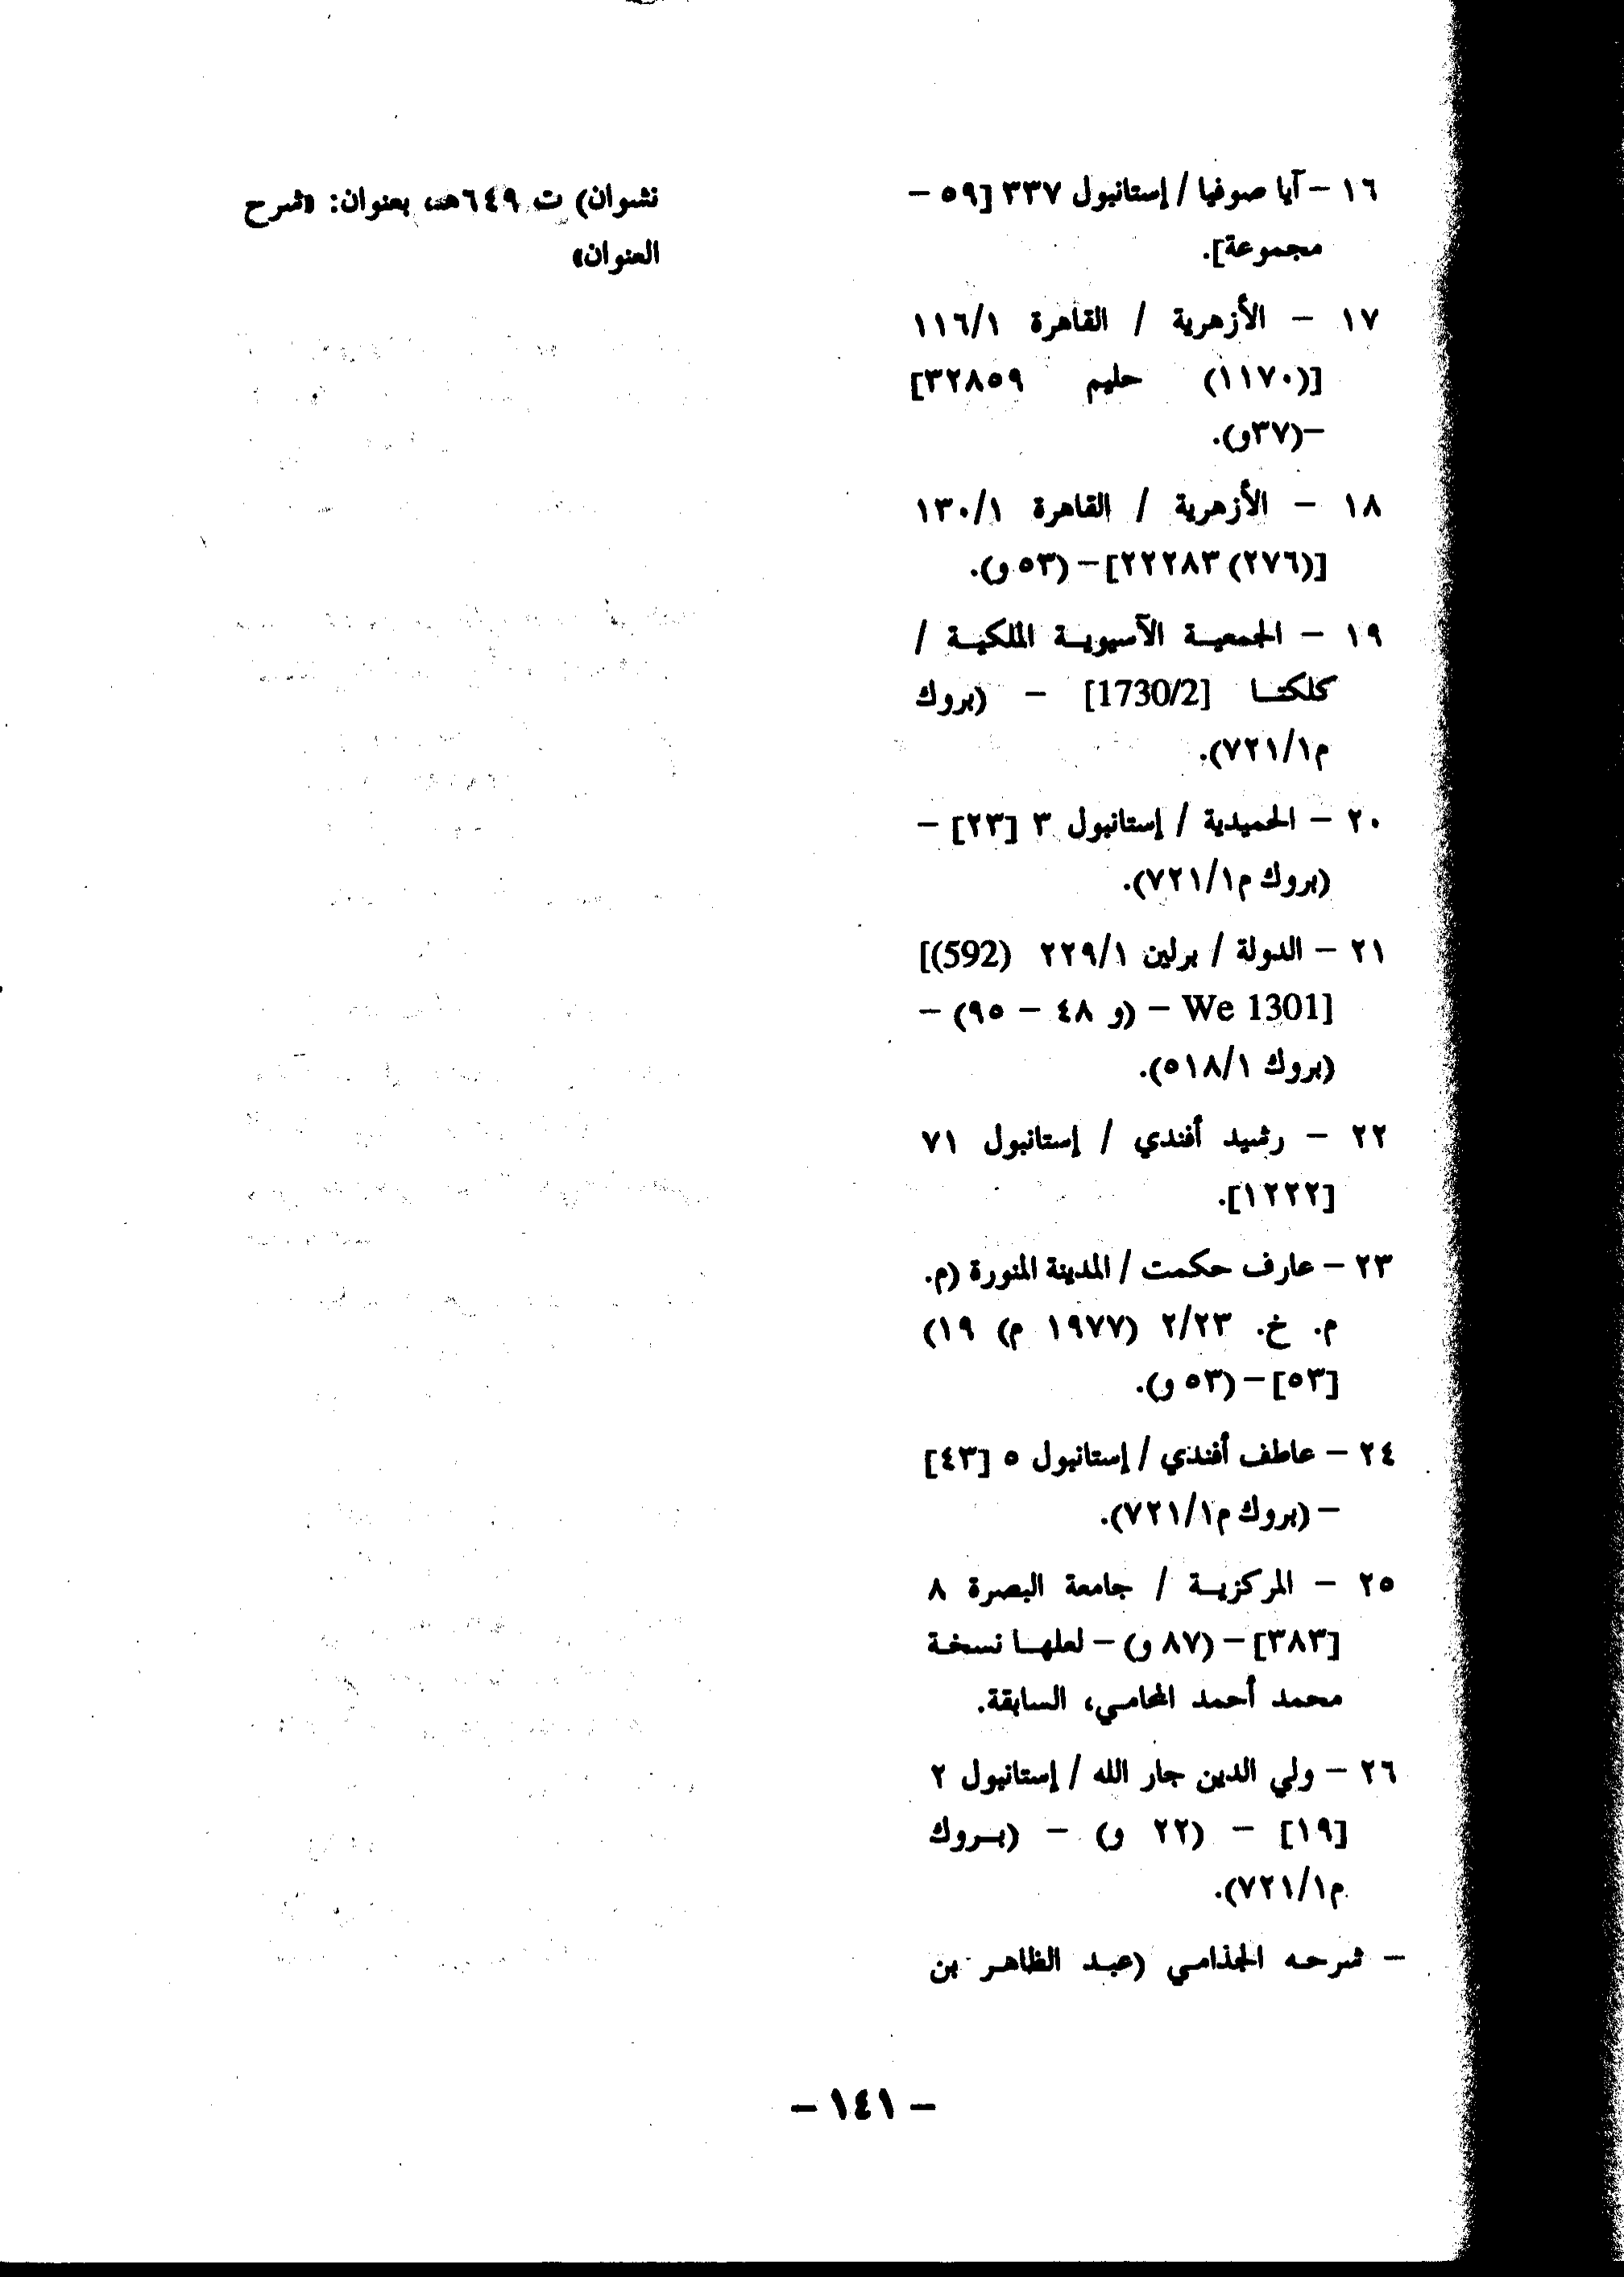 ١٦ – آيا صوفيا / إستانبول ٣٣٧ [٥٩ –
مجموعة].
١٧ – الأزهرية / القاهرة ١١٦/١
[(١١٧٠) حليم ٣٢٨٥٩]
–(٣٧و).
١٨ – الأزهرية / القاهرة ١٣٠/١
[(٢٧٦) ٢٢٢٨٣] – (٥٣ و).
١٩ – الجمعيـة الآسيويـة الملكيـة /
كلكتـا [1730/2] – (بروك
م٧٢١/١).
٢٠ – الحميدية / إستانبول ٣ [٢٣] –
(بروك م٧٢١/١).
٢١ – الدولة / برلين ٢٢٩/١ (592)]
[We 1301 – (و ٤٨ – ٩٥) –
(بروك ٥١٨/١).
٢٢ – رشيد أفندي / إستانبول ٧١
[١٢٢٢].
٢٣ – عارف حكمت / المدينة المنورة (م.
م. خ. ٢/٢٣ (١٩٧٧ م) ١٩)
[٥٣] – (٥٣ و).
٢٤ – عاطف أفندي / إستانبول ٥ [٤٣]
– (بروك م٧٢١/١).
٢٥ – المركزيـة / جامعة البصرة ٨
[٣٨٣] – (٨٧ و) – لعلهـا نسخة
محمد أحمد المحامـي، السابقة.
٢٦ – ولي الدين جار الله / إستانبول ٢
[١٩] – (٢٢ و) – (بـروك
م٧٢١/١).
– شرحـه الجذامـي (عبـد الظاهـر بن
نشوان) ت ٦٤٩هـ، بعنوان: «شرح
العنوان»
– ١٤١ –